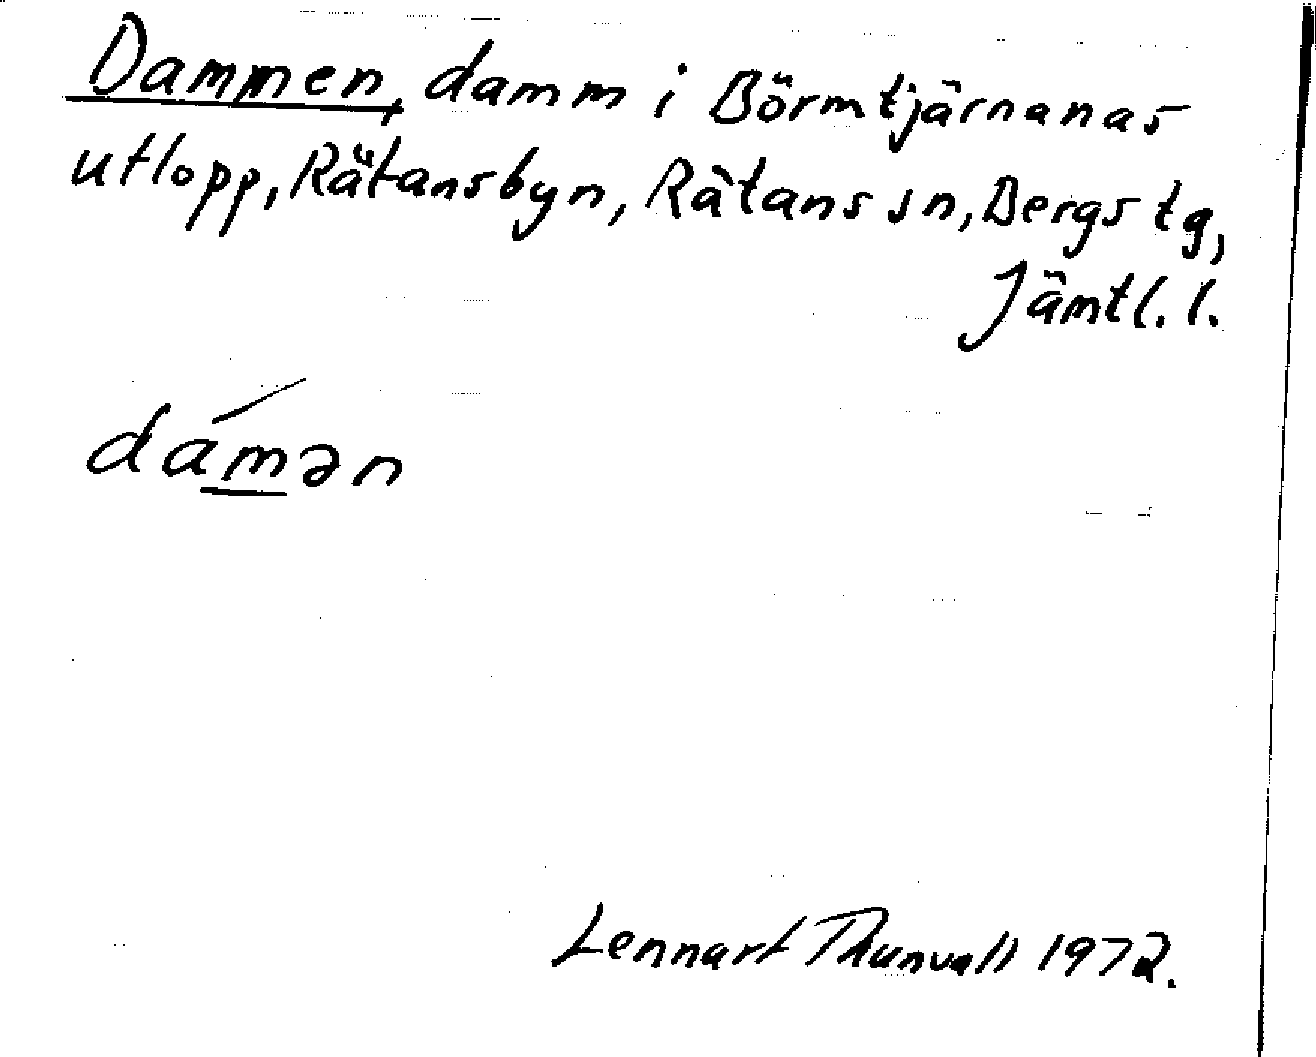 Dammen, damm i Börmtjärnanas
utlopp, Rätansbyn, Rätans sn, Bergs tg,
Jämtl. l.
dámən
Lennart Thunvall 1972.